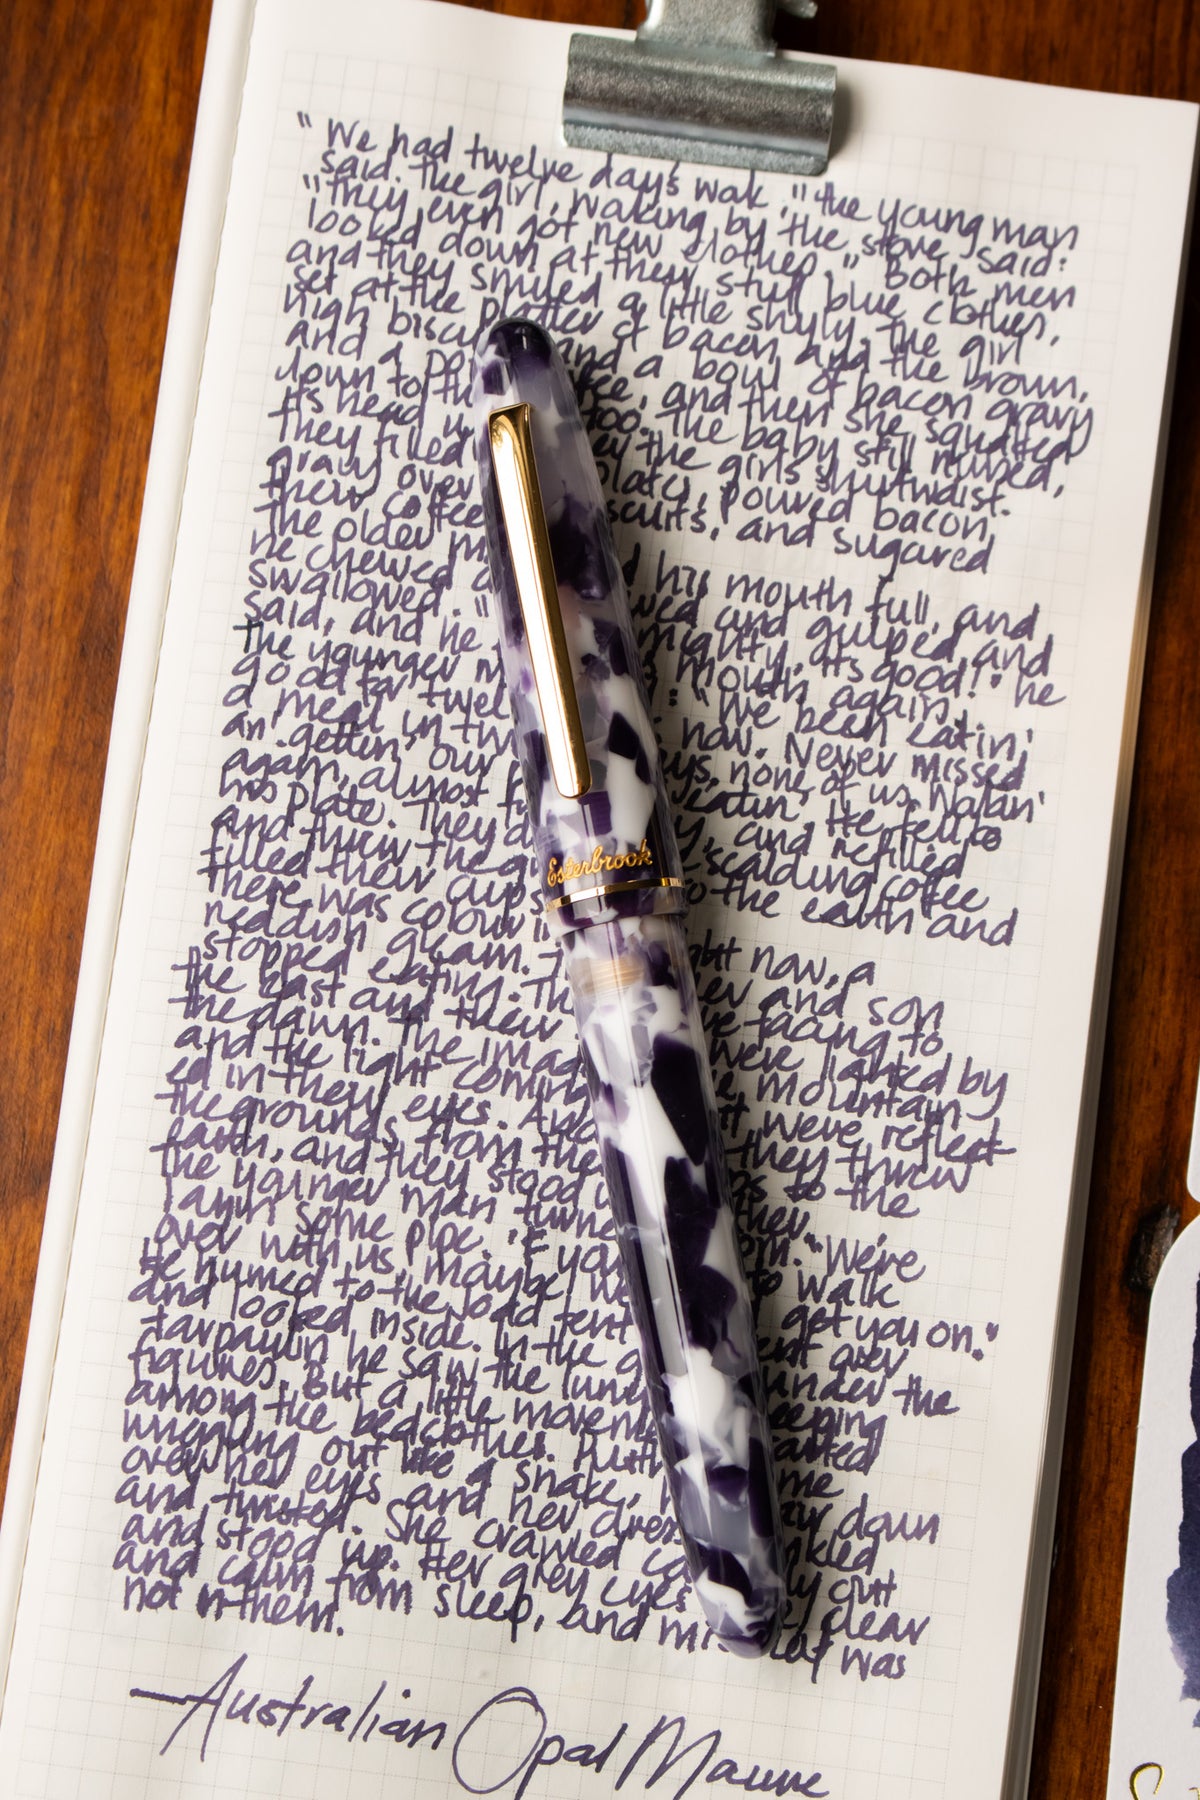 "We had twelve day's wok," the young man
said. the girl, waking by the stove said:
"They even got new clothes." Both men
looked down at their stiff blue clothes,
and they smiled a little shyly. the girl
set at the platter of bacon and the brown,
high biscu and a bowl of bacon gravy
and a po fee, and then she squatted
down to th too. The baby still nursed,
its head u the girls shirtwaist.
They filled plates, poured bacon
gravy over scuits, and sugared
their coffee
the older m d his mouth full, and
he chewed a wed and gulped and
swallowed. " mighty, its good!" he
said, and he mouth again.
the younger m : "We been eatin'
good for twel s now. Never missed
a meal in tw eys, none of us. Wolkin'
an' gettin' our eatin'. He fell to
again, almost f y, and refilled
his plate. They d scalding coffee
and threw the g to the earth and
filled their cups
there was colour in ght now, a
reddish gleam. T er and son
stopped eating. Th re facing to
the east and their were lighted by
the dawn. The imag e mountain
and the light coming it were reflect
ed in their eyes. And they threw
the grounds from the s to the
earth, and they stood u ther.
the younger man turne om. "We're
layin some pipe. 'F you to walk
over with us, maybe we get you on."
He numed to the load tent ent grey
and looked inside. In the g under the
tarpaulin he saw the lump eeping
figures. But a little moveme arted
among the bedclothes. Ruth me
wriggling out like a snake, air down
over her eyes and her dress nkled
and twisted. She crawled ca ly out
and stood up. Her grey eyes e clear
and calm from sleep, and mis ief was
not in them.
—Australian Opal Mauve
Esterbrook